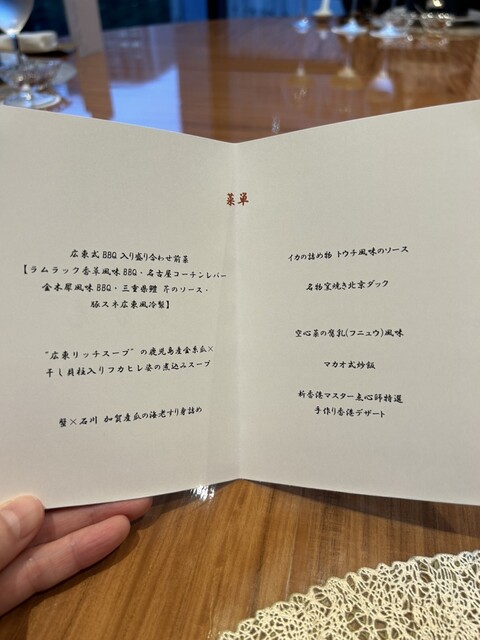 菜単
広東式BBQ入り盛り合わせ前菜
【ラムラック香草風味BBQ・名古屋コーチンレバー
金木犀風味BBQ・三重県鱧 芹のソース・
豚スネ広東風冷製】
"広東リッチスープ"の鹿児島産金糸瓜×
干し貝柱入りフカヒレ姿の煮込みスープ
蟹×石川 加賀産瓜の海老すり身詰め
イカの詰め物 トウチ風味のソース
名物窯焼き北京ダック
空心菜の腐乳(フニュウ)風味
マカオ式炒飯
新香港マスター点心師特選
手作り香港デザート